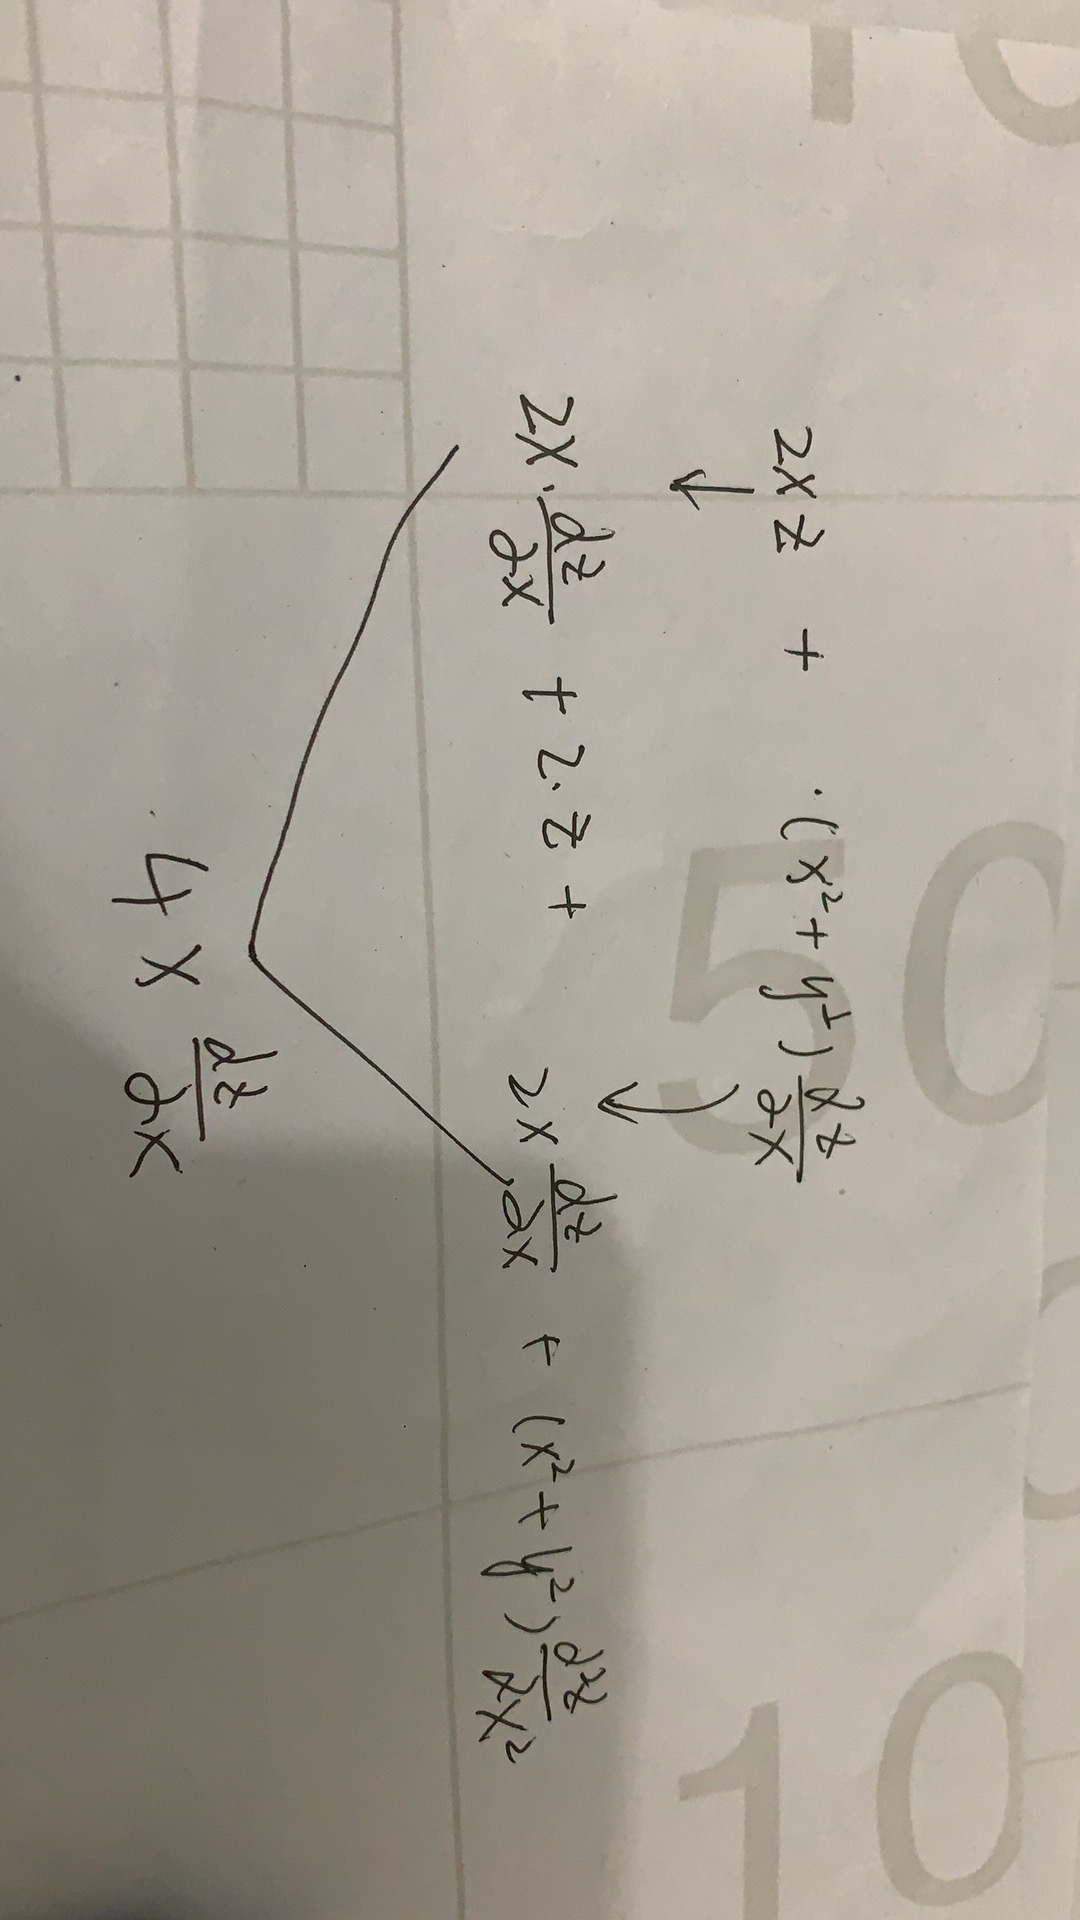 2xz + · (x² + y²) ∂z/∂x
↓ ↓
2x · ∂z/∂x + 2 · z + 2x ∂z/∂x + (x² + y²) ∂²z/∂x²
4x ∂z/∂x
50
10